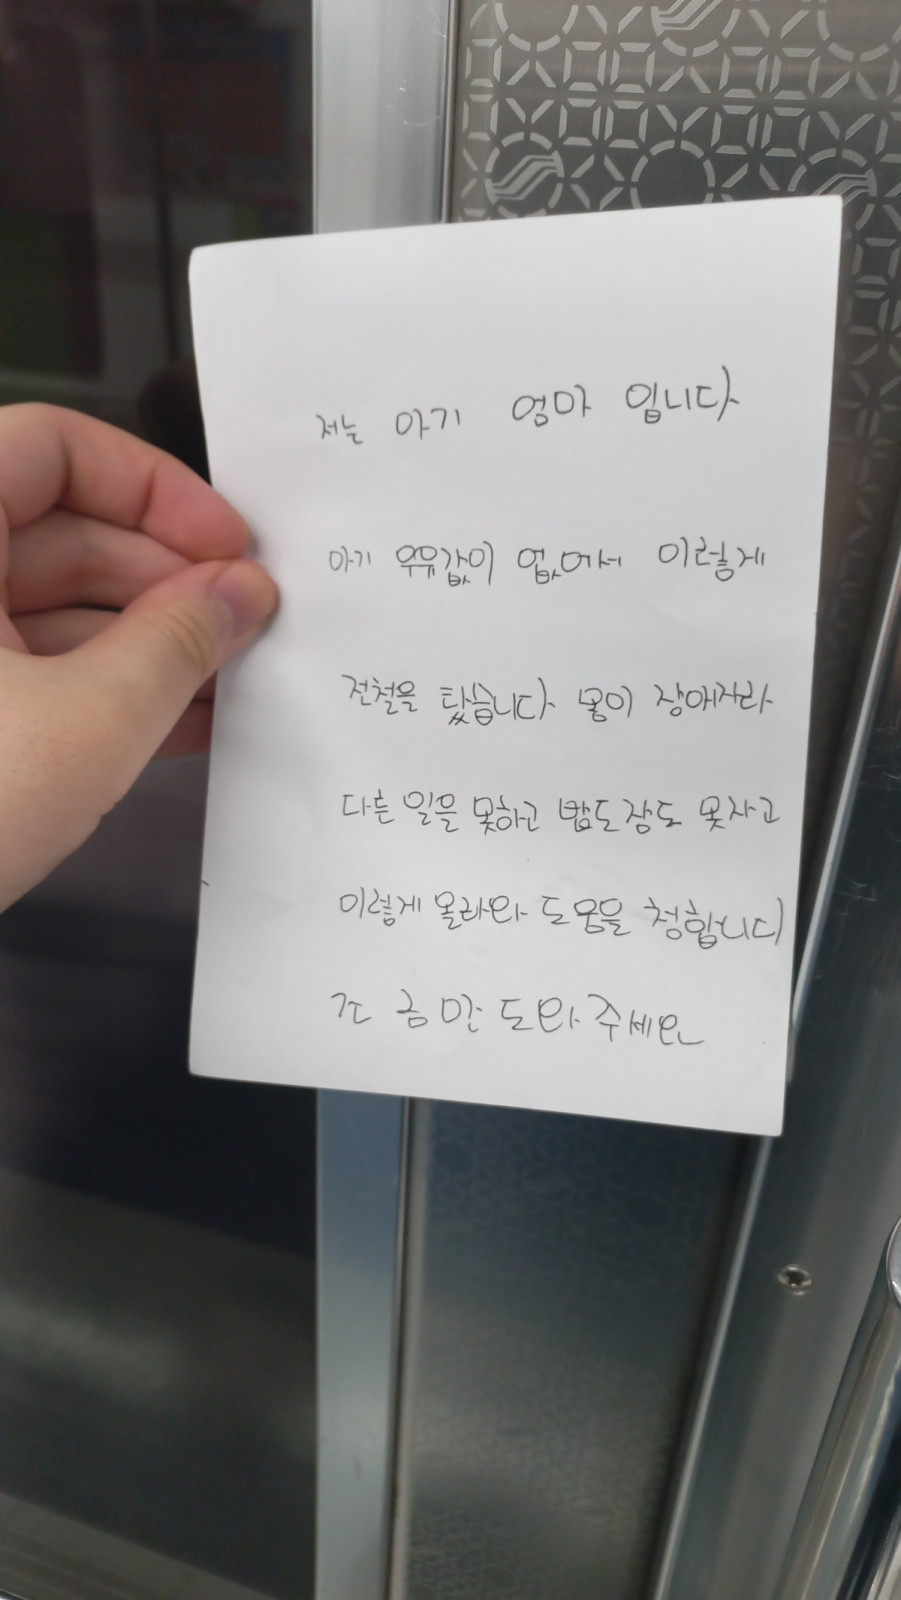 저는 아기 엄마 입니다
아기 우유값이 없어서 이렇게
전철을 탔습니다 몸이 장애자라
다른 일을 못하고 밥도잠도 못자고
이렇게 올라와 도움을 청합니다
조금만 도와주세요